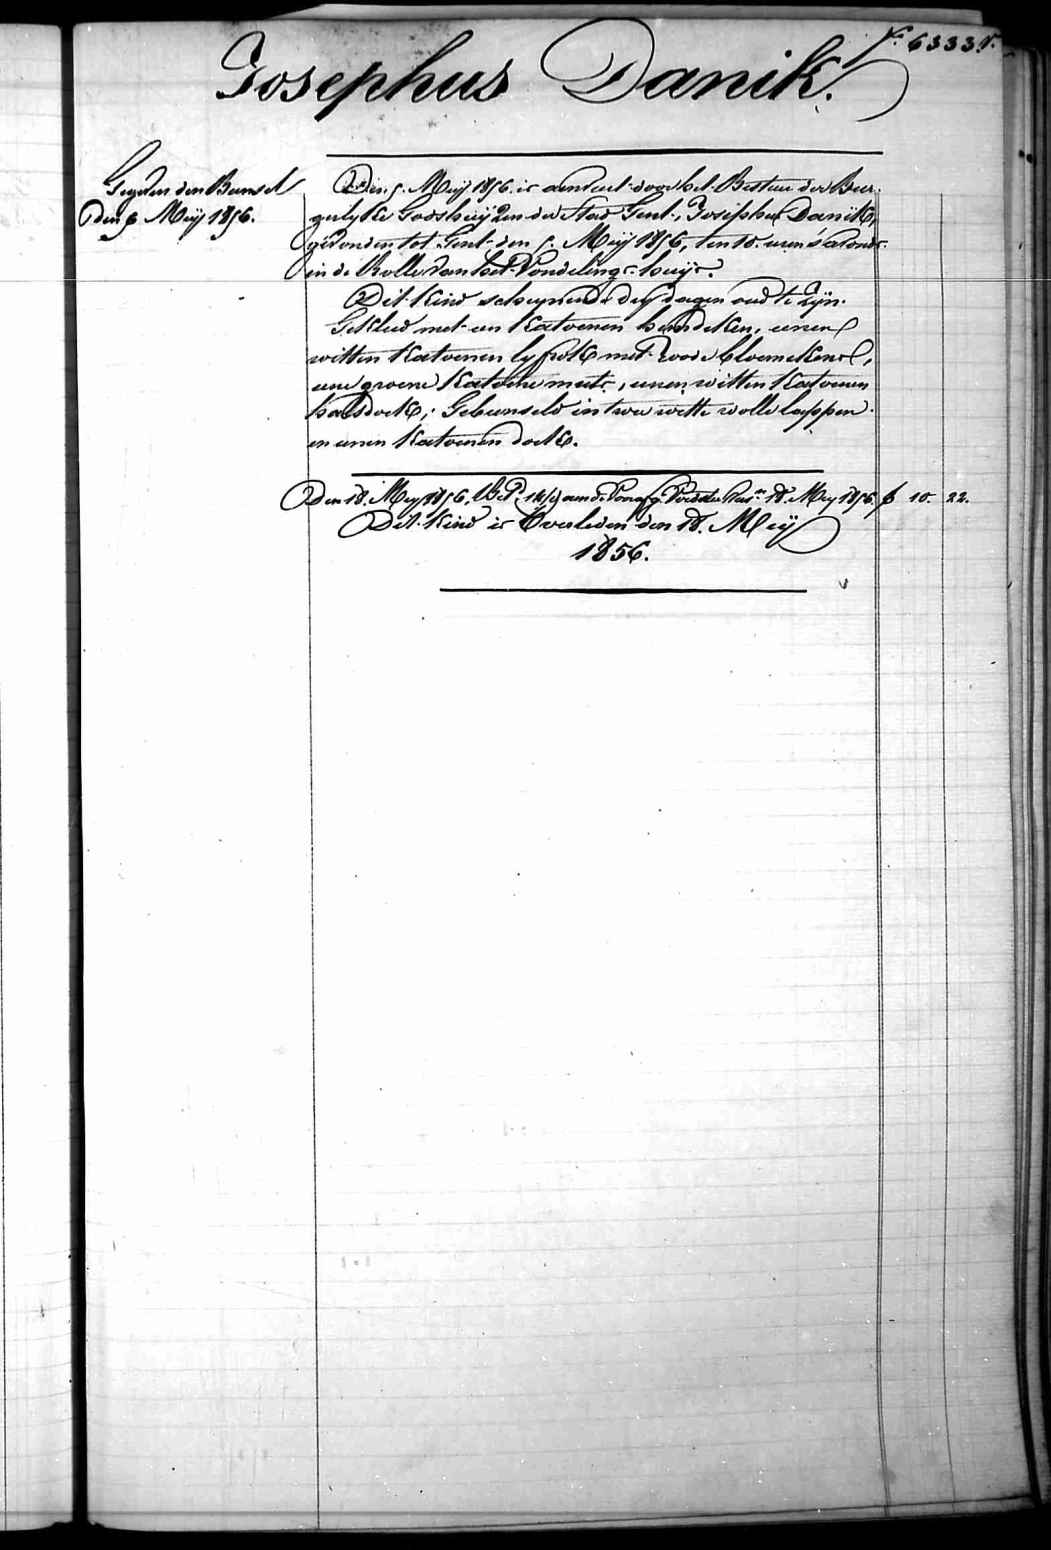 6333.
Josephus Danik.
Gegeven den Bunsel
Den 6 Meÿ 1856.
Den 5. Meÿ 1856. is aenveert door het Bestuer der Bur-
gerlyke Godshuÿzen der Stad Gent, Josephus Danik,
gevonden tot Gent den 5. Meÿ 1856, ten 10. uren 's avonds
in de Rolle van het Vondelings-huÿs.
Dit Kind schynende dry dagen oud te zÿn.
Gekleed met een Katoenen hemdeken, eenen
witten Katoenen lyfrok met roode bloemekens,
eene groene Katoene muts, eenen witten Katoenen
halsdoek; Gebunseld in twee witte wolle lappen
en eenen Katoenen doek.
Den 18. Mey 1856, Bet. aen de 18. Mey 1856. f 10. 22.
Dit Kind is Overleden den 18. Meÿ
1856.